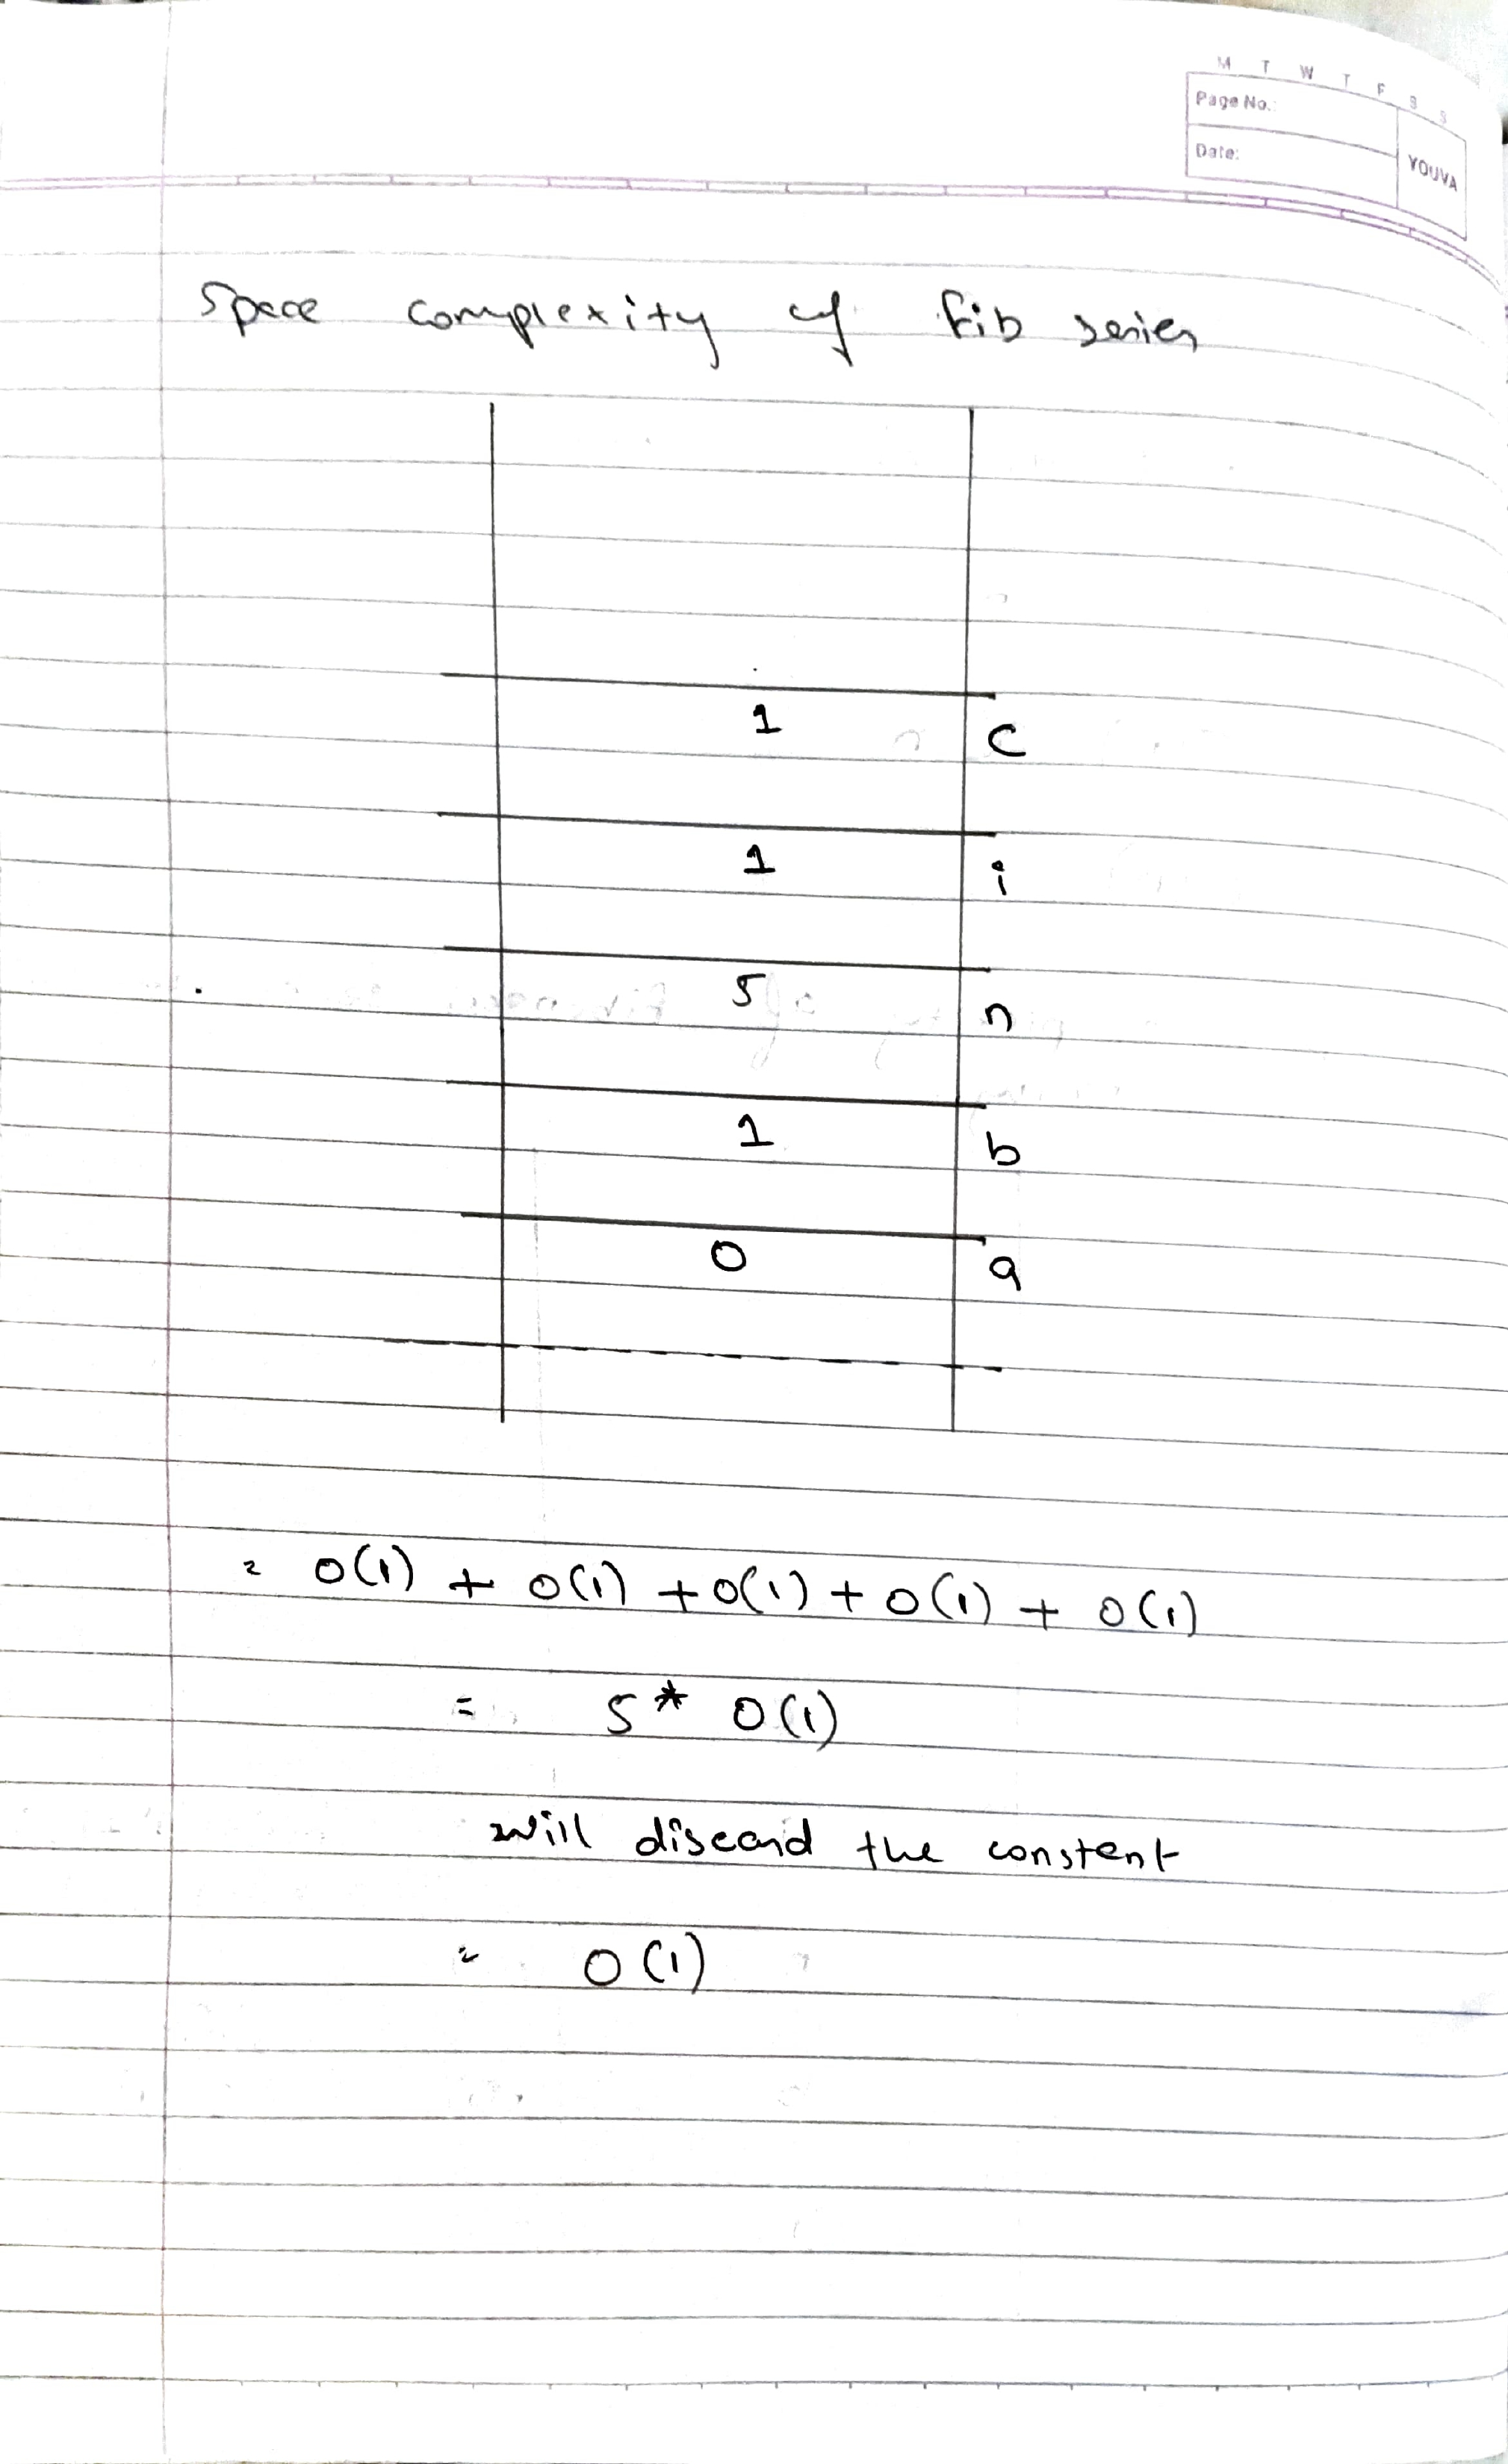 M T W T F S S
Page No.:
Date:
YOUVA
Space complexity of fib series
1 c
1 i
5 n
1 b
0 a
= O(1) + O(1) + O(1) + O(1) + O(1)
= 5 * O(1)
will discard the constent
= O(1)